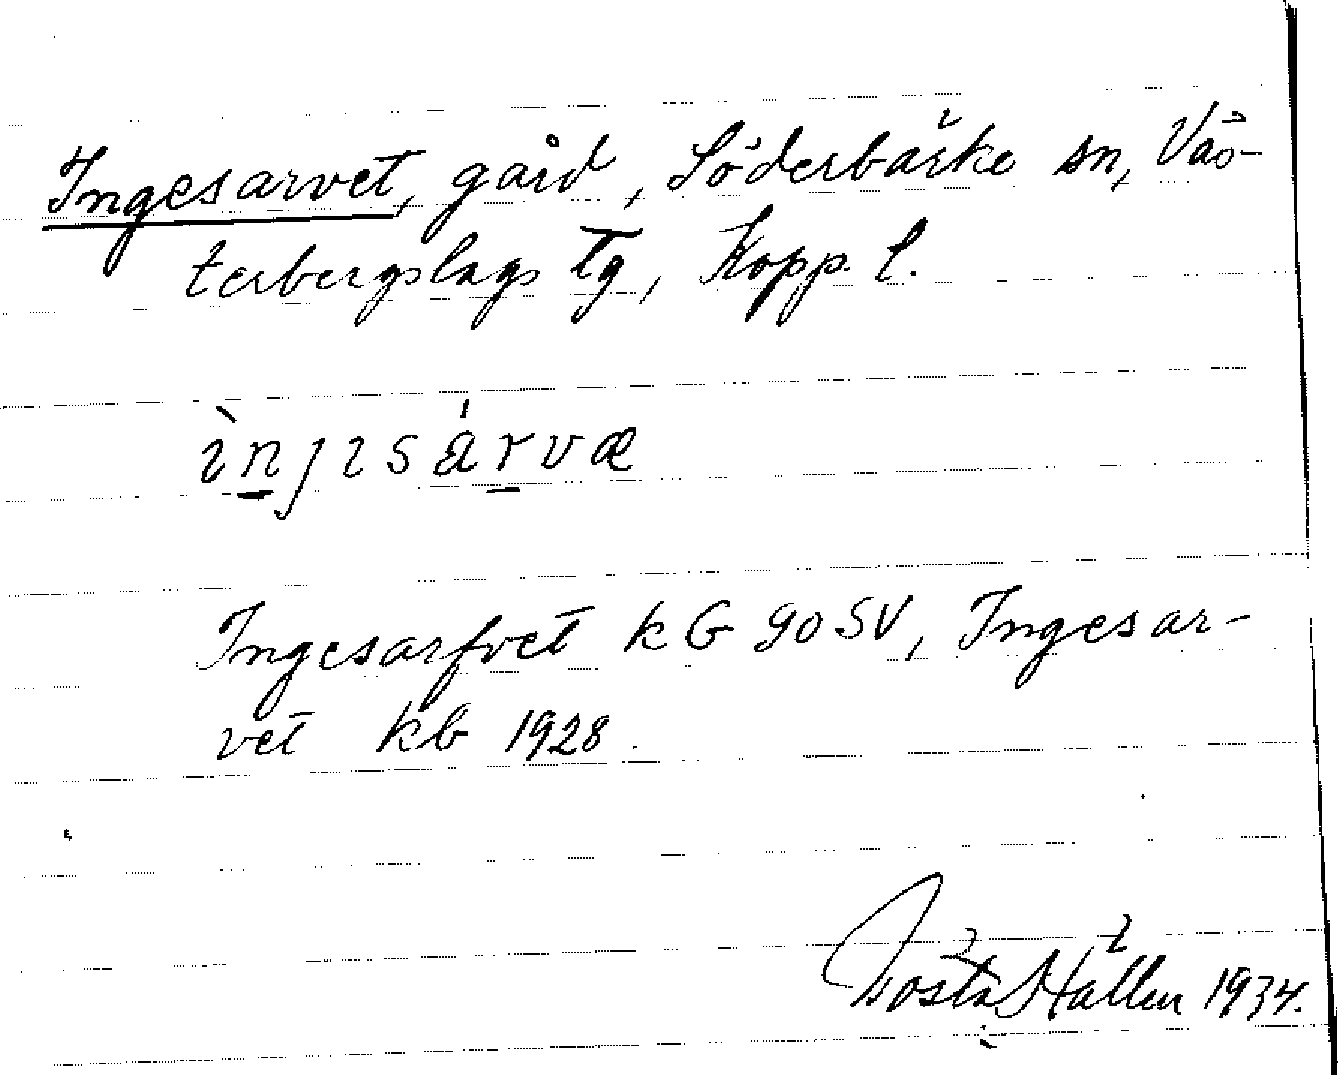 Ingesarvet, gård, Söderbärke sn, Väs-
terbergslags tg, Kopp. l.
ìn̲jısár̲væ
Ingesarfvet kG 90 SV, Ingesar-
vet kb 1928.
Gösta Hallen 1934.